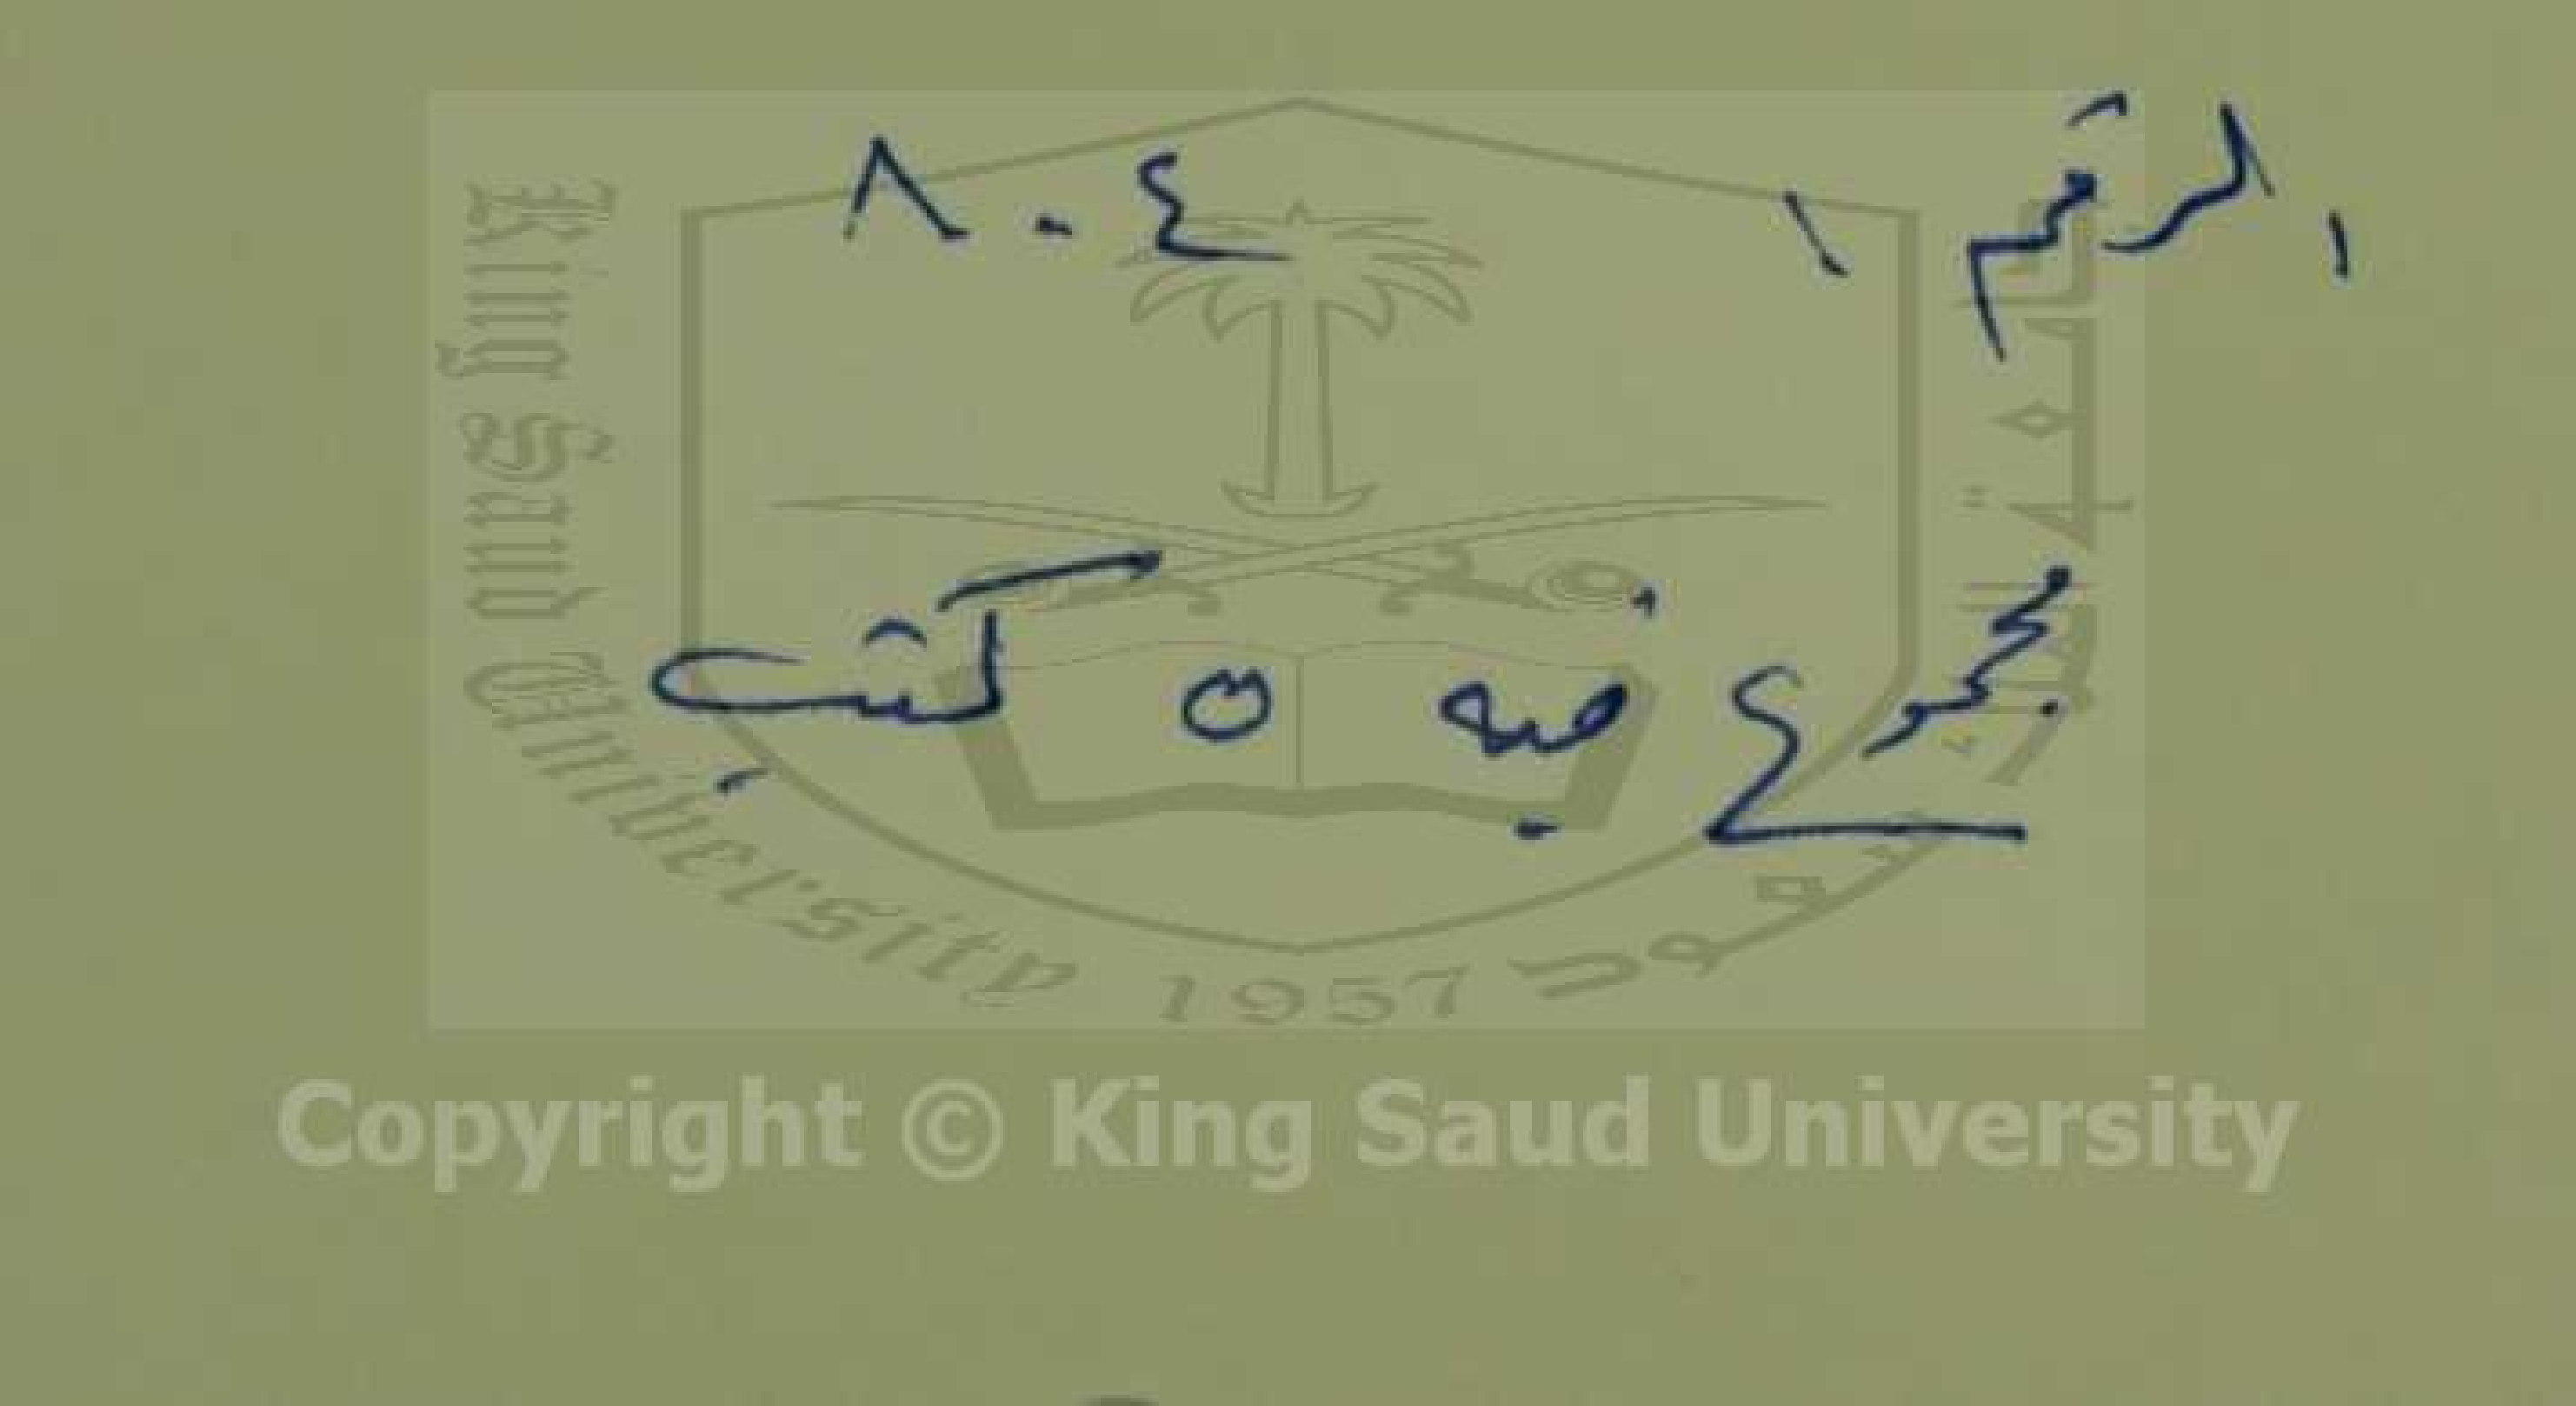 الرقم ١ ٨٠٤
مجموع فيه ٥ كتب
King Saud University 1957
Copyright © King Saud University